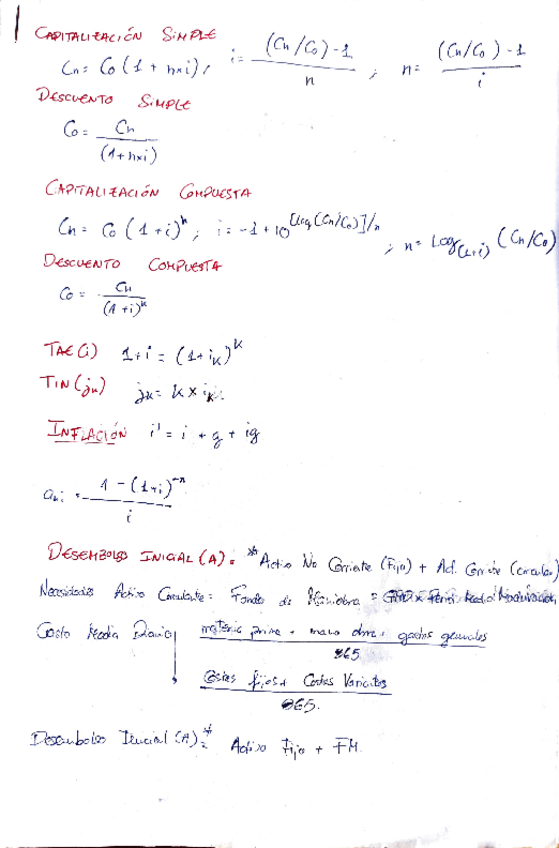 CAPITALIZACIÓN SIMPLE
Cn = Co (1 + n×i), i = (Cn/Co) - 1 / n ; n = (Cn/Co) - 1 / i
DESCUENTO SIMPLE
Co = Cn / (1+n×i)
CAPITALIZACIÓN COMPUESTA
Cn = Co (1+i)^n ; i = -1 + 10^[log(Cn/Co)]/n ; n = Log(1+i) (Cn/Co)
DESCUENTO COMPUESTA
Co = Cn / (1+i)^n
TAE (i) 1+i = (1+ik)^k
TIN (jk) jk = k × ik
INFLACIÓN i' = i + g + ig
ani = 1 - (1+i)^-n / i
DESEMBOLSO INICIAL (A): * Activo No Corriente (Fijo) + Act. Corriente (circulante)
Necesidades Activo Circulante: Fondo de Maniobra = × Medio Maduración
Costo Medio Diario materia prima + mano obra + gastos generales / 365
Costes fijos + Costes Variables / 365.
Desembolso Inicial (A):* Activo Fijo + FM.